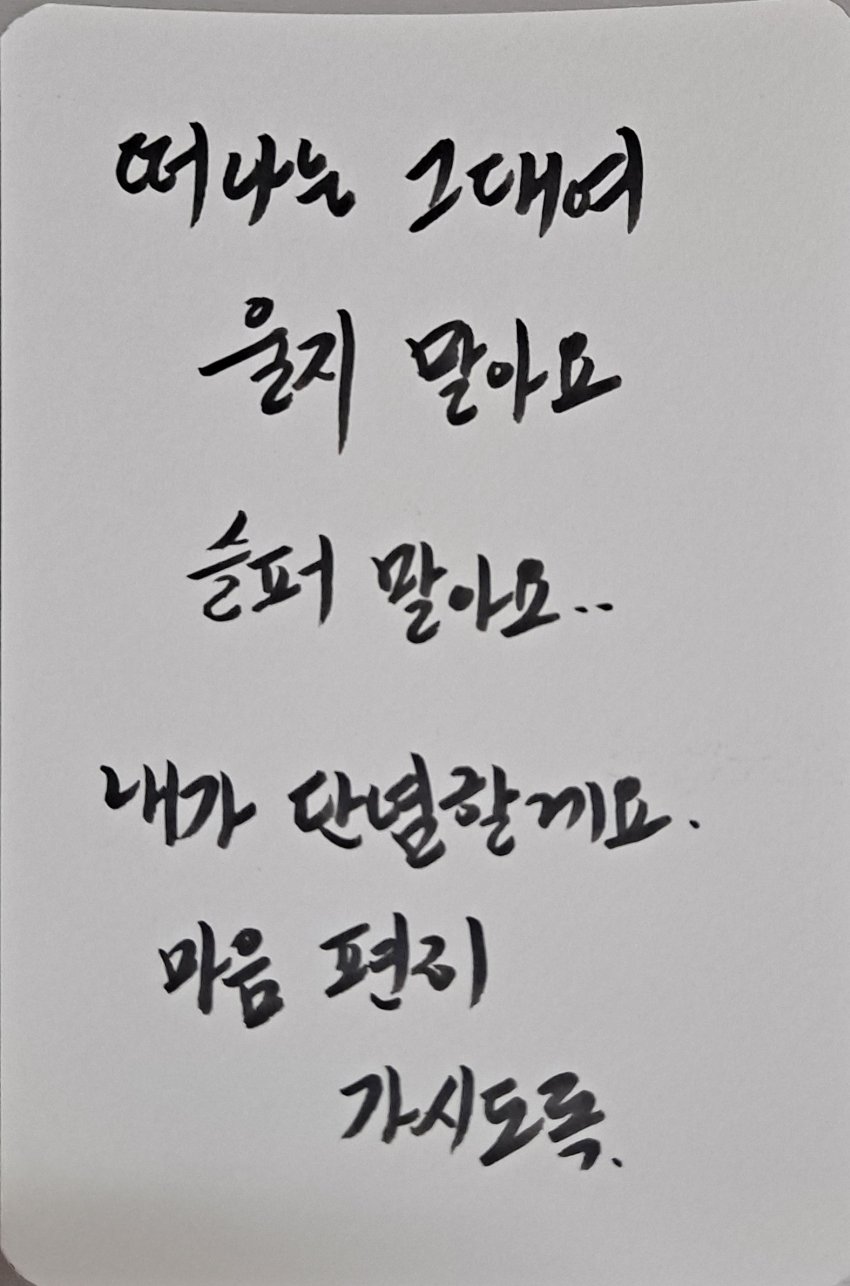 떠나는 그대여
울지 말아요
슬퍼 말아요..
내가 단념할게요.
마음 편히
가시도록.